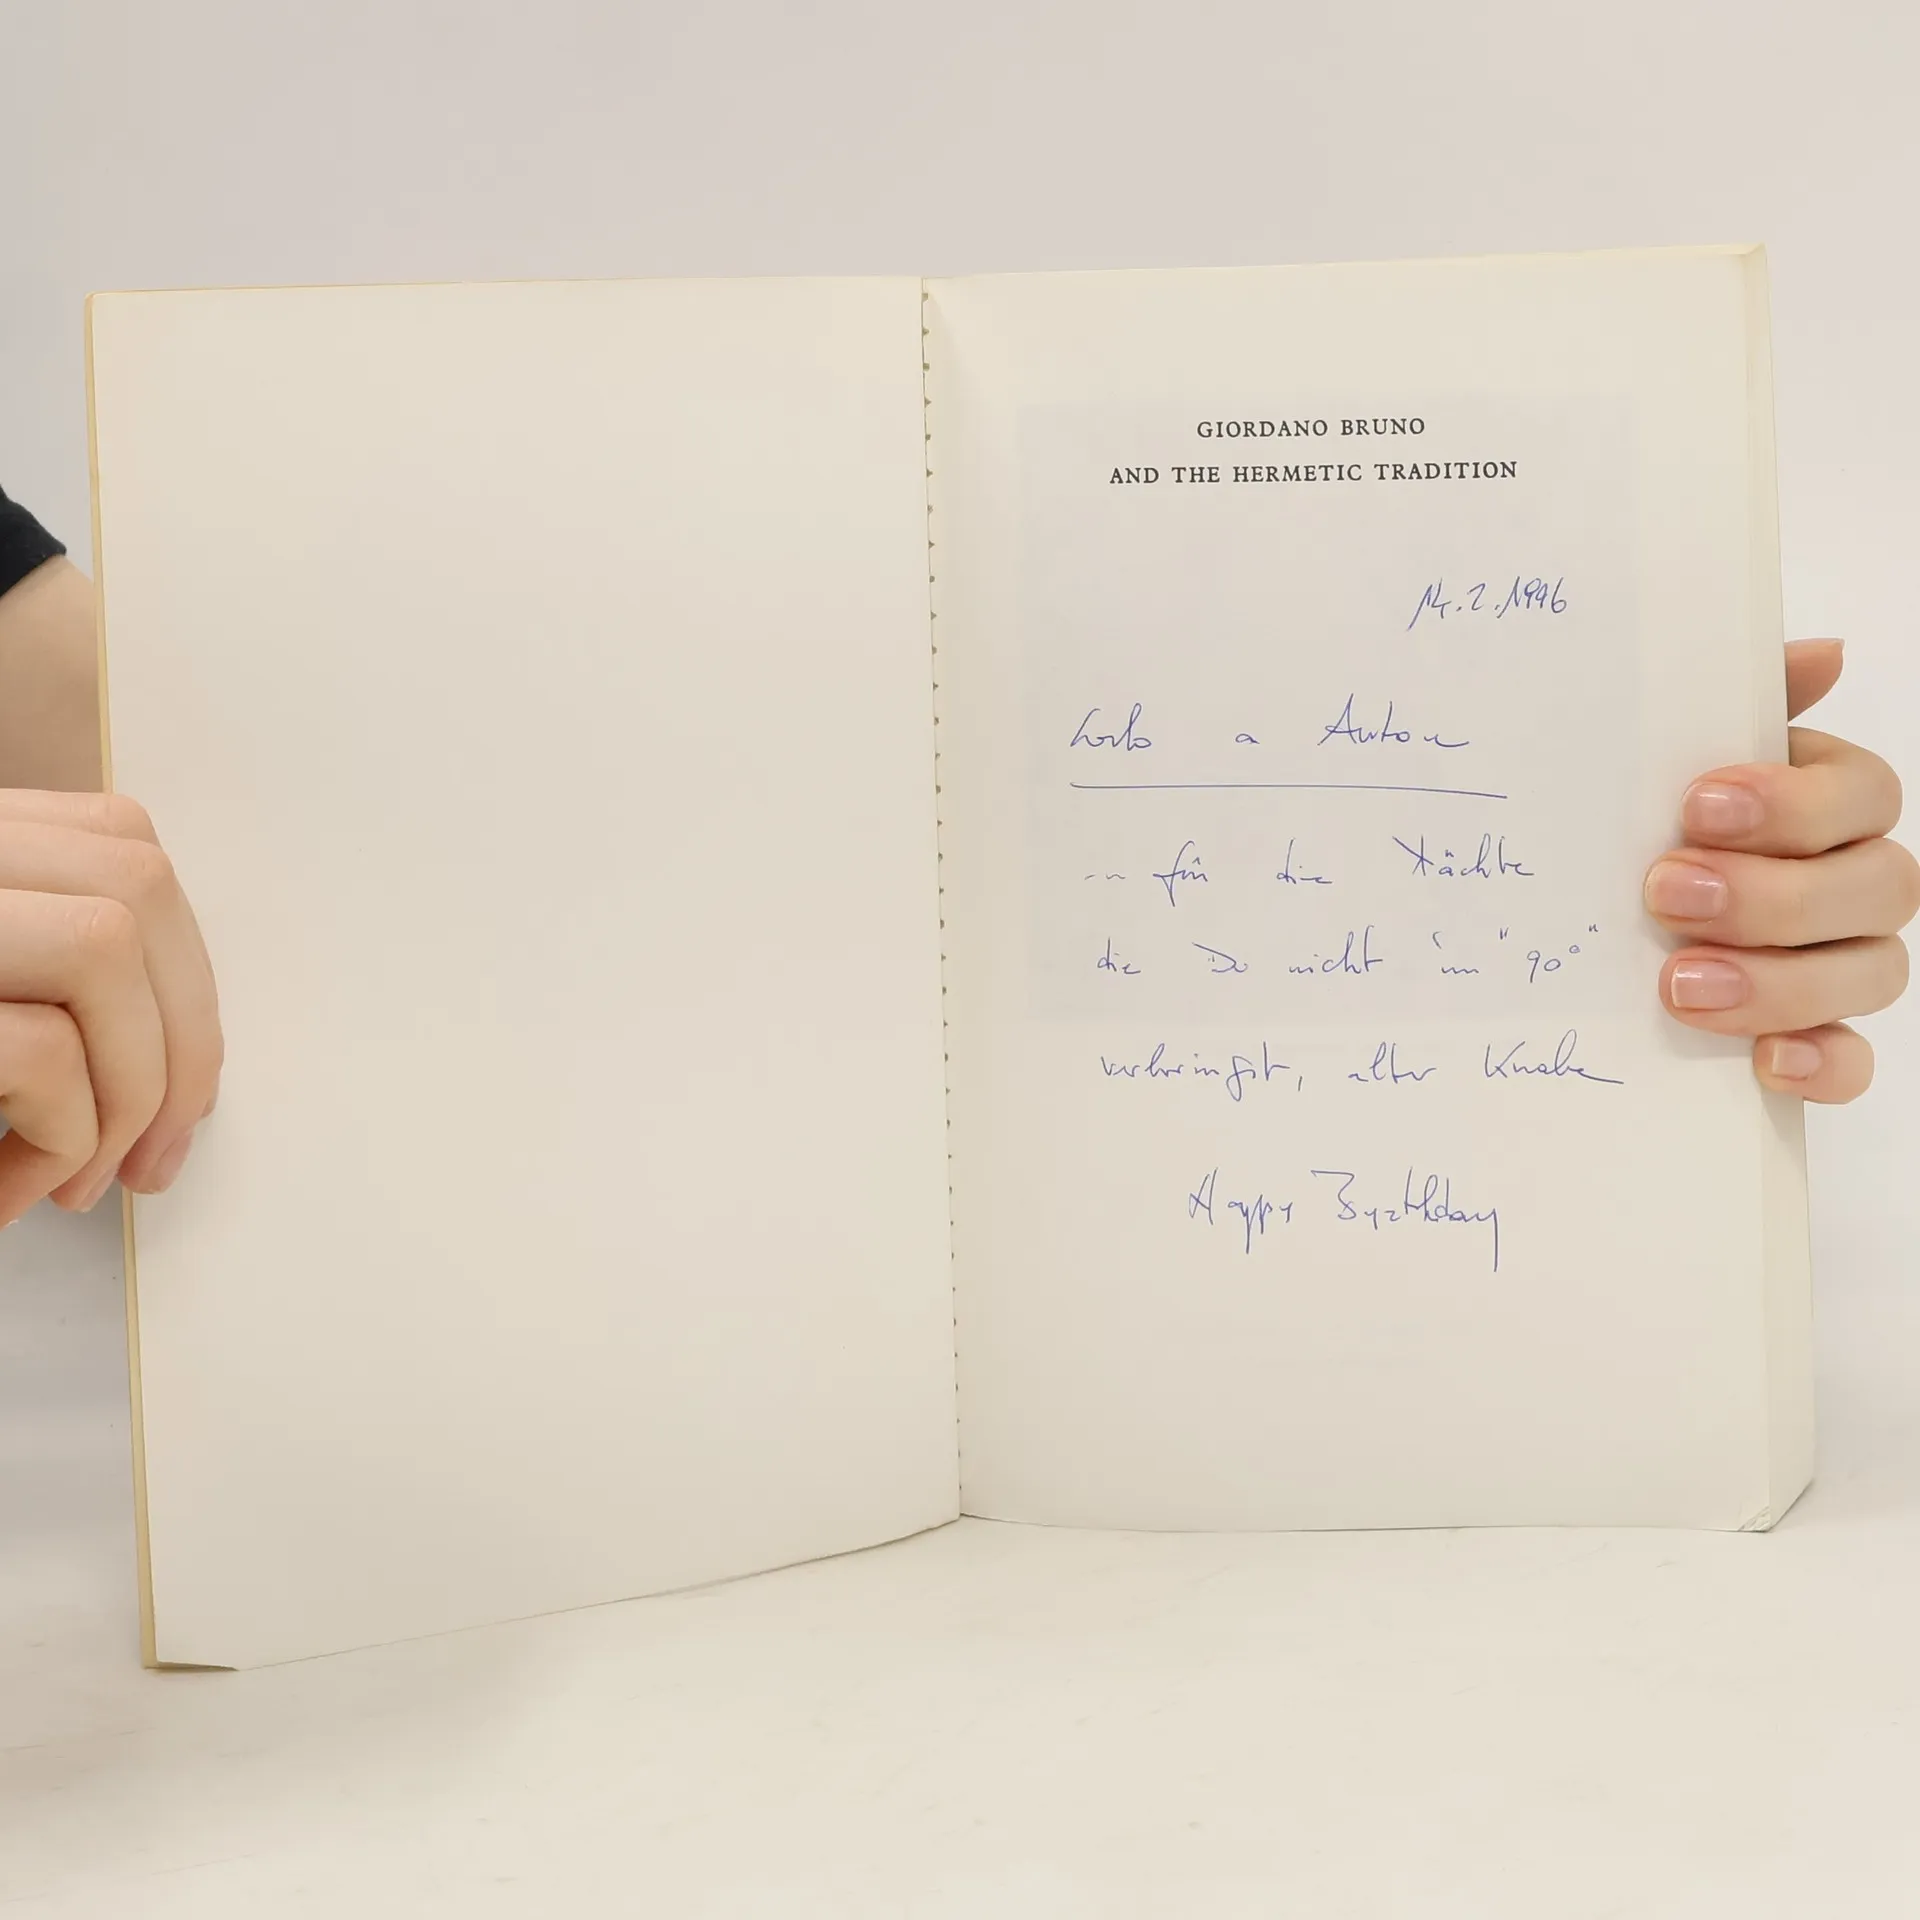 GIORDANO BRUNO
AND THE HERMETIC TRADITION
14.2.1996
a Anton
für die Nächte
die Du nicht im "90°"
verbringst, alter Knabe
Happy Byrthday